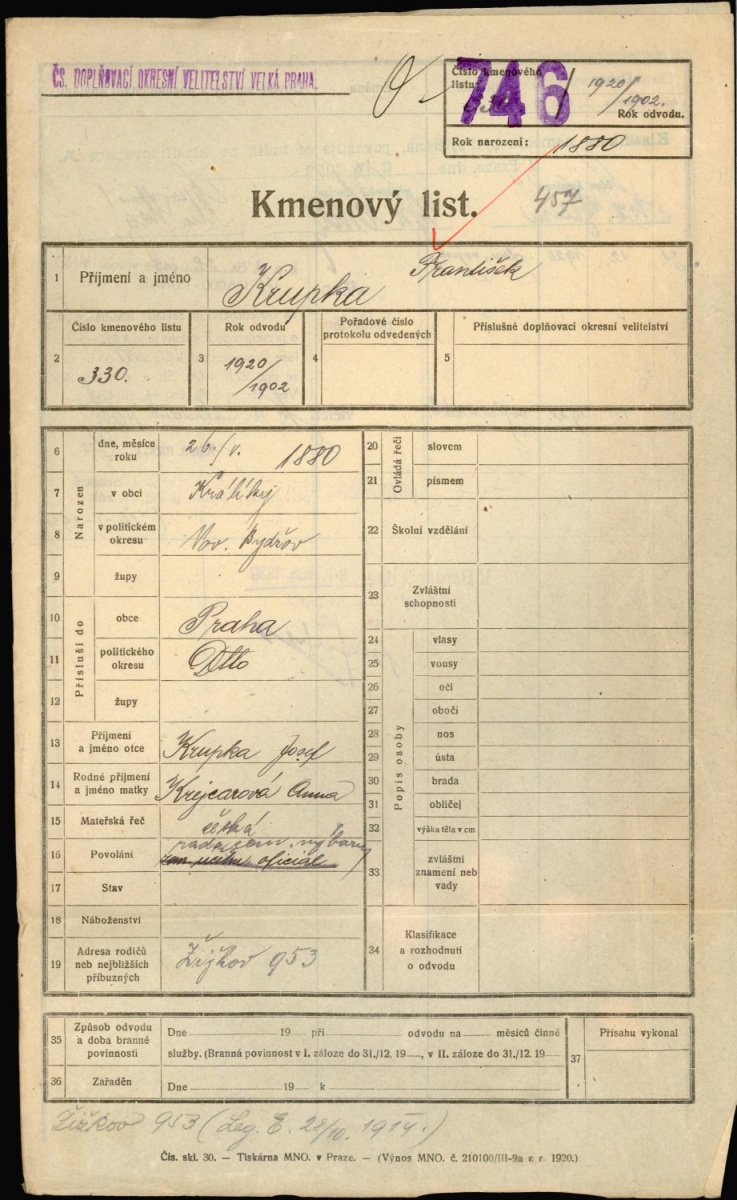 ČS. DOPLŇOVACÍ OKRESNÍ VELITELSTVÍ VELKÁ PRAHA.
Číslo kmenového listu
746
1920/1902
Rok odvodu.
Rok narození: 1880
Kmenový list. 457
1 Příjmení a jméno Krupka František
2 Číslo kmenového listu 330.
3 Rok odvodu 1920/1902
4 Pořadové číslo protokolu odvedených
5 Příslušné doplňovací okresní velitelství
Narozen
6 dne, měsíce roku 26./V. 1880
7 v obci Králíky
8 v politickém okresu Nov. Bydžov
9 župy
Přísluší do
10 obce Praha
11 politického okresu Dtto
12 župy
13 Příjmení a jméno otce Krupka Josef
14 Rodné příjmení a jméno matky Krejcarová Anna
15 Mateřská řeč česká
16 Povolání oficiál
17 Stav
18 Náboženství
19 Adresa rodičů neb nejbližších příbuzných Žižkov 953
Ovládá řeči
20 slovem
21 písmem
22 Školní vzdělání
23 Zvláštní schopnosti
Popis osoby
24 vlasy
25 vousy
26 oči
27 obočí
28 nos
29 ústa
30 brada
31 obličej
32 výška těla v cm
33 zvláštní znamení neb vady
34 Klasifikace a rozhodnutí o odvodu
35 Způsob odvodu a doba branné povinnosti
Dne 19 při odvodu na měsíců činné
služby. (Branná povinnost v I. záloze do 31./12. 19 , v II. záloze do 31/12. 19
36 Zařaděn Dne 19 k
37 Přísahu vykonal
Žižkov 953 (Leg. E. 28/10. 1914.)
Čís. skl. 30. — Tiskárna MNO. v Praze. — (Výnos MNO. č. 210100/III-9a z r. 1920.)